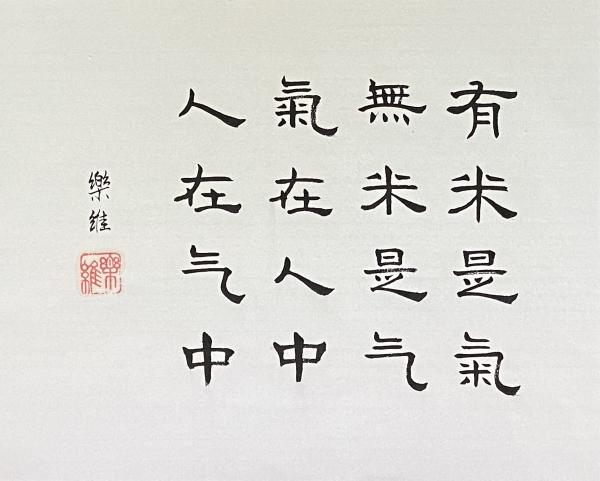 有米是氣
無米是气
氣在人中
人在气中
樂維
樂維